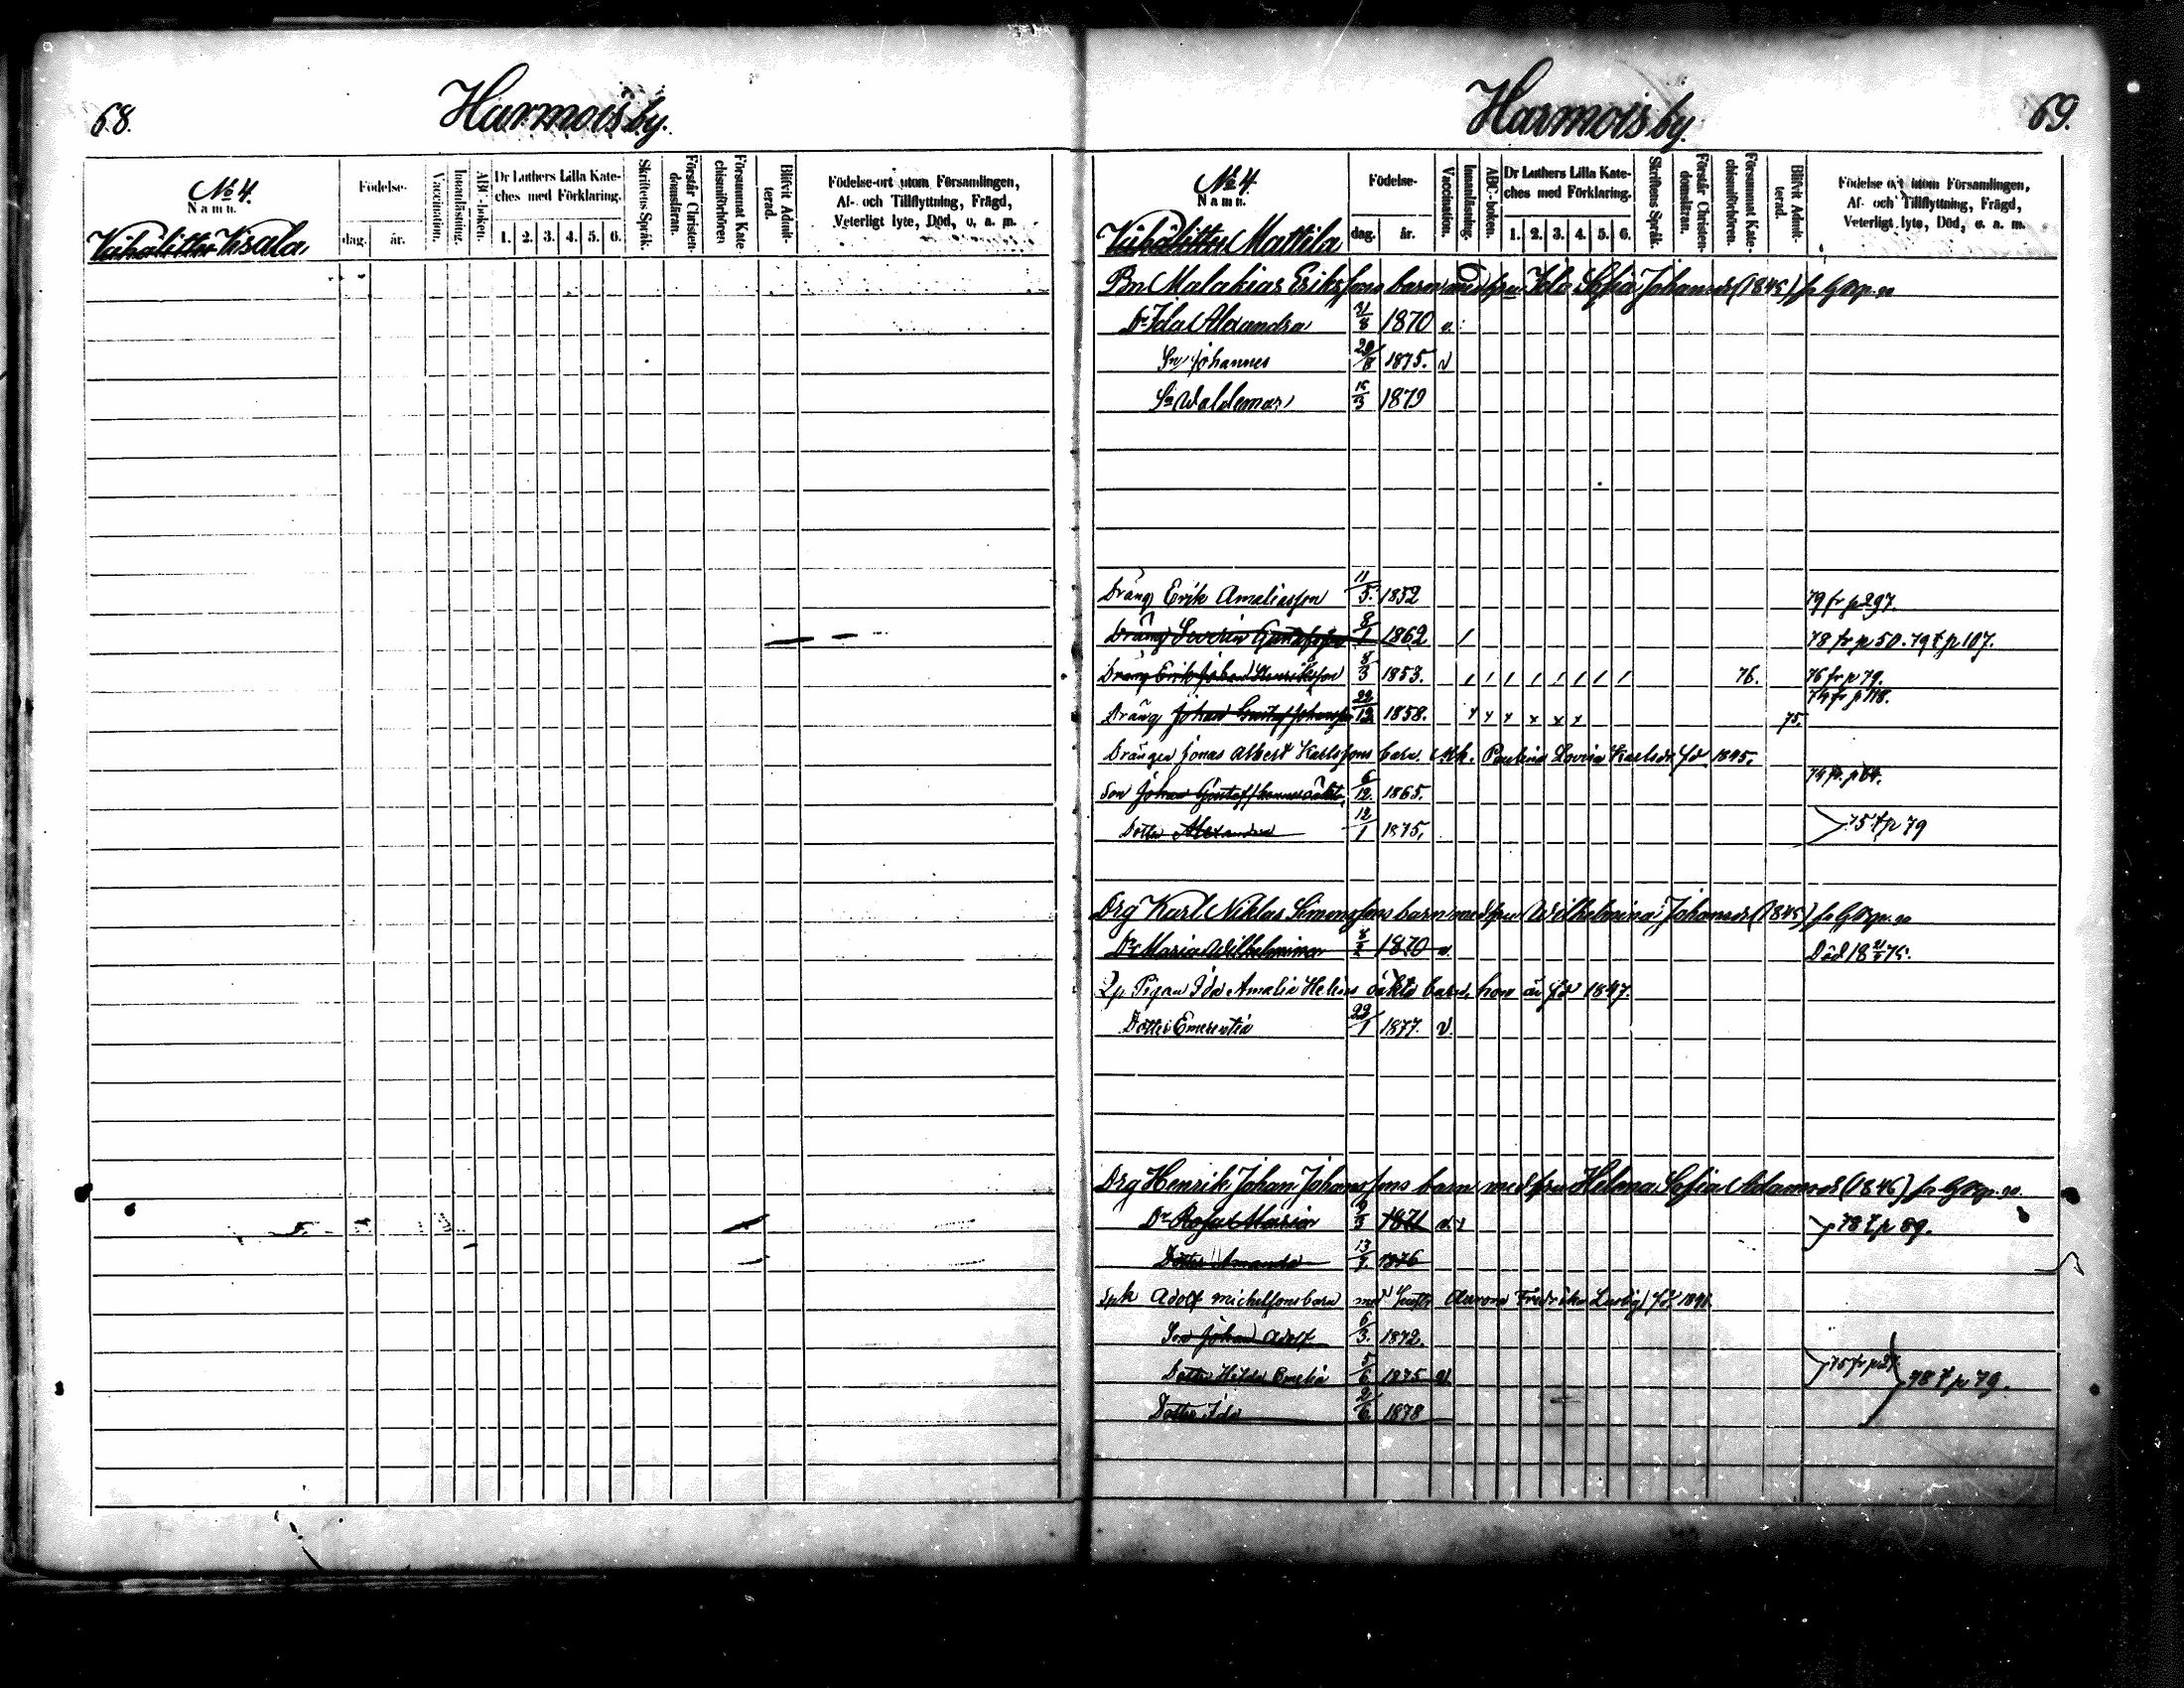 68.
Harmois by.
No 4.
Namn.
Födelse-
dag. år.
Vaccination.
Innanläsning.
ABC-boken.
Dr Luthers Lilla Kate-
ches med Förklaring.
1. 2. 3. 4. 5. 6.
Skriftens Språk.
Förstår Christen-
domsläran.
Försummat Kate-
chismiförhören.
Blifvit Admit-
terad.
Födelse-ort utom Församlingen,
Af- och Tillflyttning, Frägd,
Veterligt lyte, Död, o. a. m.
Harmois by.
69.
No 4.
Namn.
Mattila
Födelse-
dag. år.
Vaccination.
Innanläsning.
ABC-boken.
Dr Luthers Lilla Kate-
ches med Förklaring.
1. 2. 3. 4. 5. 6.
Skriftens Språk.
Förstår Christen-
domsläran.
Försummat Kate-
chismiförhören.
Blifvit Admit-
terad.
Födelse ort utom Församlingen,
Af- och Tillflyttning, Frägd,
Veterligt lyte, Död, o. a. m.
Bn Malakias Erikssons barn med hru Ida Sofia Johansdr (1845)
Dr Ida Alexandra 1870 v.
Sn Johannes 20/8 1875. v
Sn Waldemar 15/3 1879
Dräng Erik Amaliasson 11/5. 1852 79 fr p 297.
Dräng Severin Gustafsson 8/1 1862 / 78 fr p 50. 79 t p 107.
Dräng Erik Johan Henriksson 8/3 1853. / / / / / / / / 76. 76 fr p 79.
74 fr p 118.
Dräng Johan Gustaf Johansson 22/12 1858. x x x x x x 75.
Drängen Jonas Albert Karlssons barn. M.h. Paulina Lovisa Karlsdr fd 1845.
Son Johan Gustaf 6/12. 1865.
Dotter Alexandra 12/1 1875. 75 t p 79
Drg Karl Niklas Simonssons barn med hru Wilhelmina Johansdr (1845)
Dr Maria Wilhelmina 1870 v. Död 75.
Pigan Ida Amalia Helins oäkta barn, hon är fd 1847.
Dotter Emerentia 22/1 1877. v.
Drg Henrik Johan Johanssons barn med hru Helena Sofia Adamsdr (1846)
Dr Rosa Maria 1871 78 t p 89.
Dotter Amanda 1876
Spk Adolf Michelssons barn med hustr Aurora Fredrika
Son Johan Adolf 6/3. 1872.
Dotter Hilda Emelia 5/6 1875 v 78 t p 79.
Dotter Ida 2/6 1878